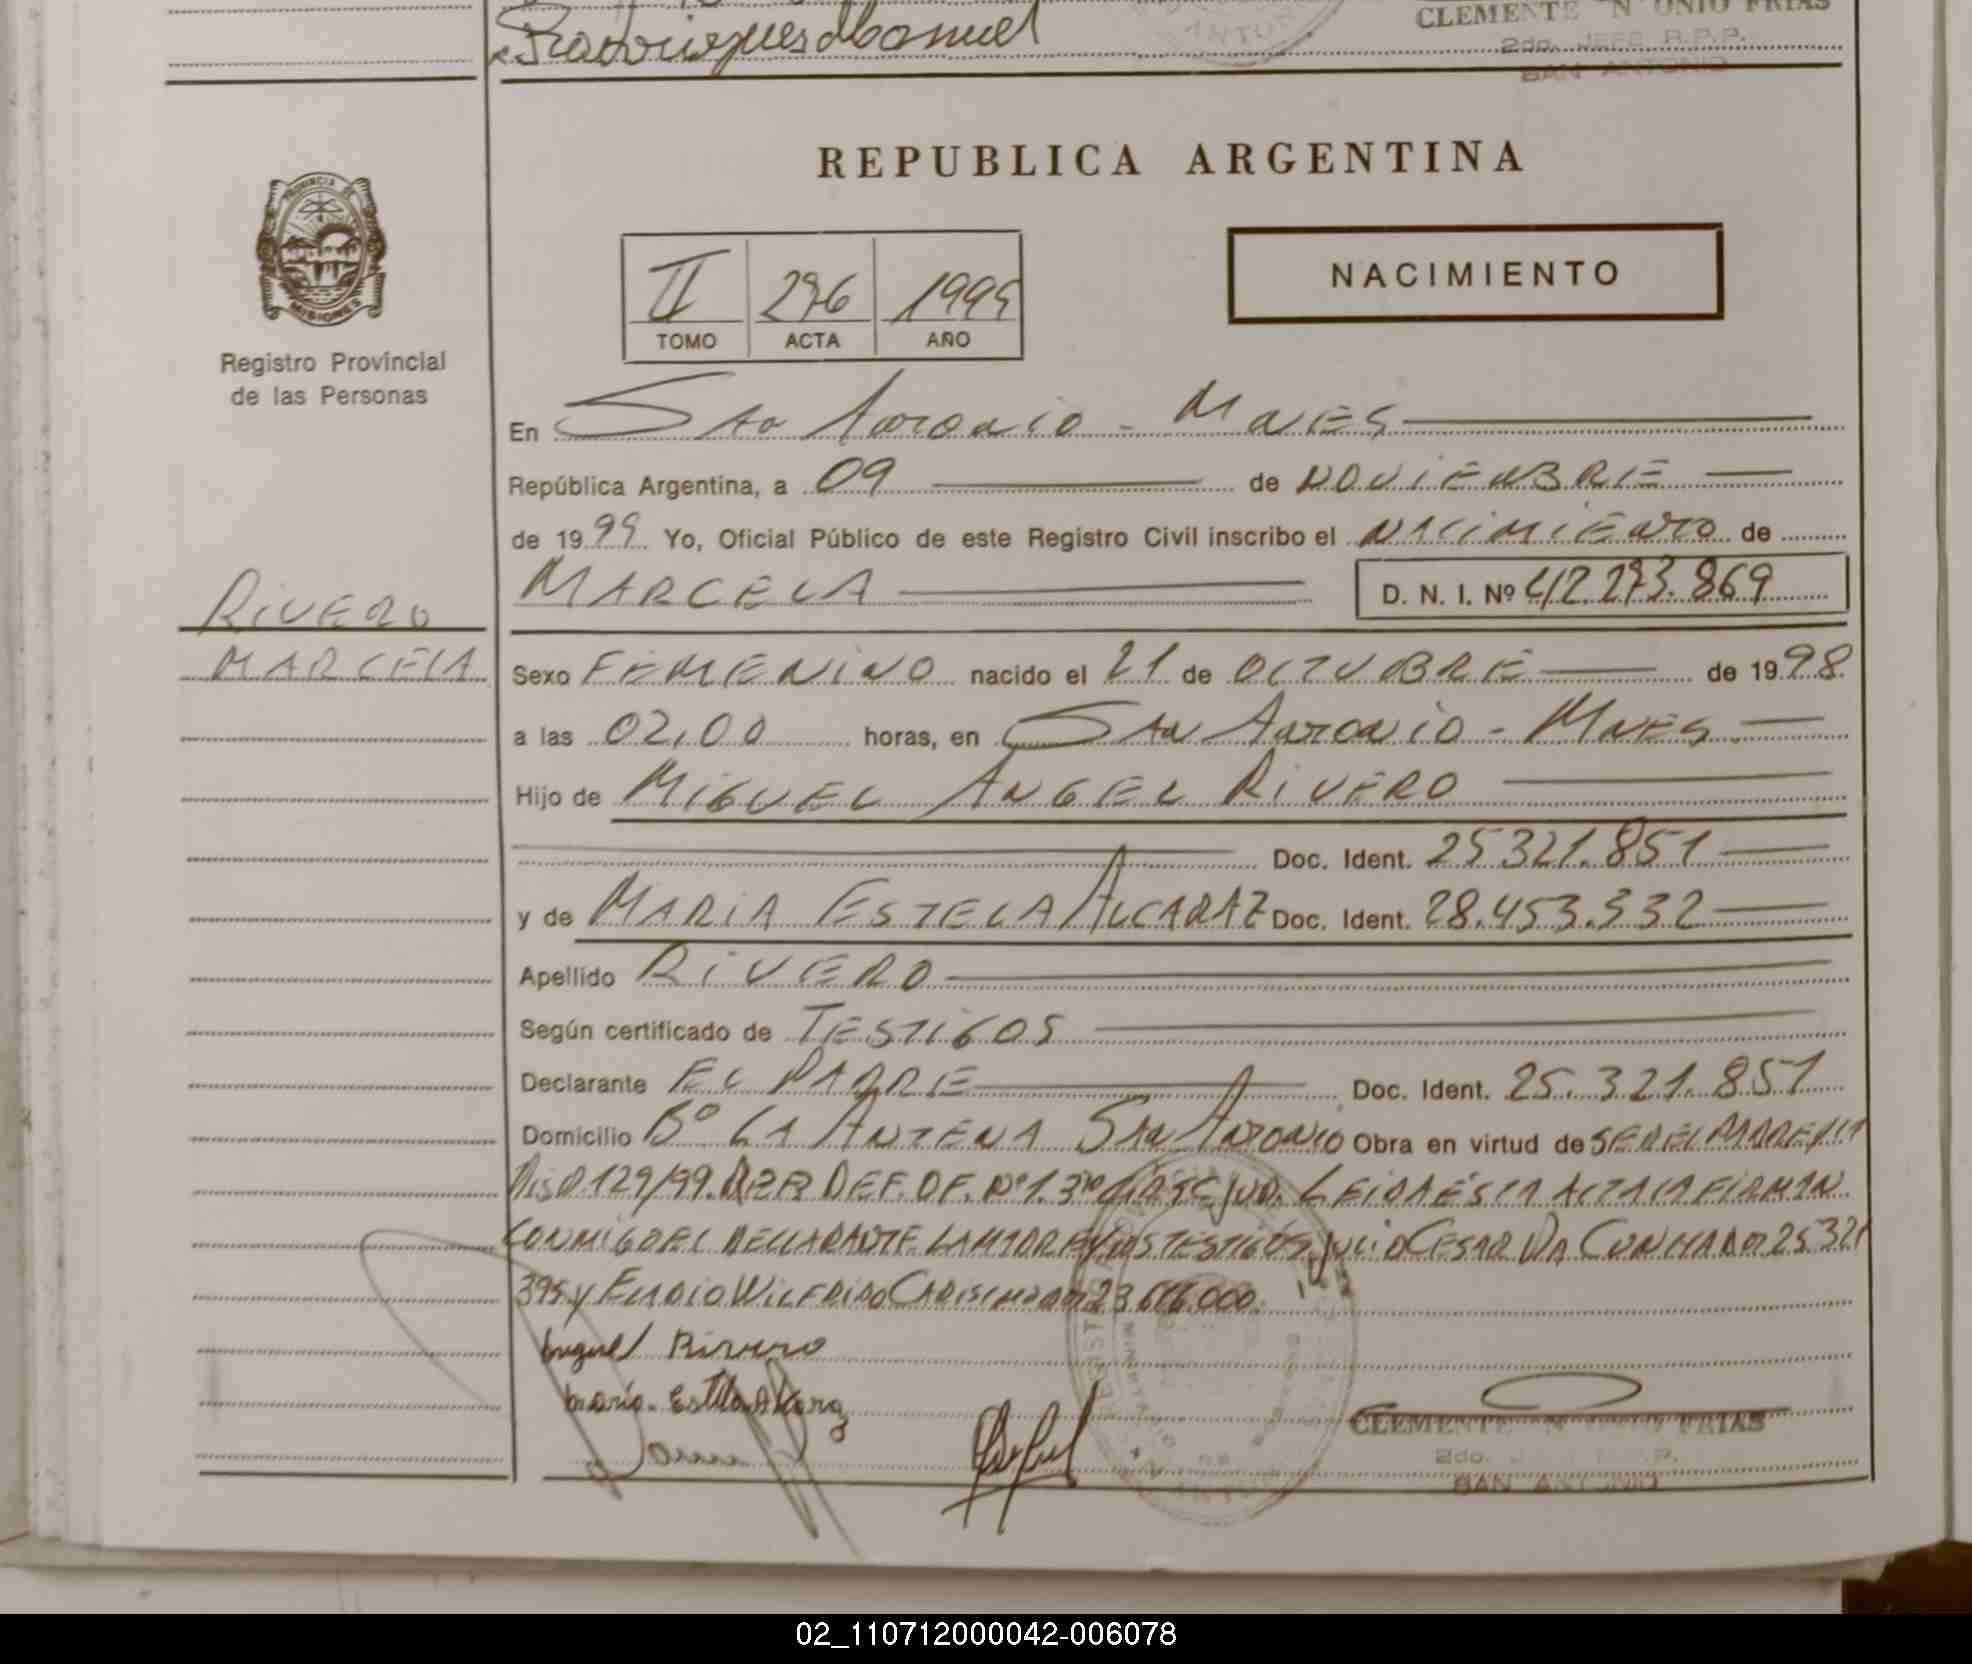 Rodriguez Manuel
CLEMENTE N ONIO FRIAS
2do. JEFE R.P.P.
SAN ANTONIO
REPUBLICA ARGENTINA
PROVINCIA DE
MISIONES
Registro Provincial
de las Personas
II 276 1999
TOMO ACTA AÑO
NACIMIENTO
En San Antonio - Mnes
República Argentina, a 09 de NOVIEMBRE
de 1999 Yo, Oficial Público de este Registro Civil inscribo el NACIMIENTO de
MARCELA D. N. I. Nº 42.273.869
RIVERO
MARCELA
Sexo FEMENINO nacido el 21 de OCTUBRE de 1998
a las 02,00 horas, en San Antonio - Mnes
Hijo de MIGUEL ANGEL RIVERO
Doc. Ident. 25.321.851
y de MARIA ESTELA ALCARAZ Doc. Ident. 28.453.332
Apellido RIVERO
Según certificado de TESTIGOS
Declarante EL PADRE Doc. Ident. 25.321.851
Domicilio Bº LA ANTENA San Antonio Obra en virtud de SER EL PADRE
DISP. 129/99. DEF. OF. Nº 1. 3ra CIRSC. JUD. LEIDA ESTA ACTA LA FIRMAN
CONMIGO EL DECLARANTE LA MADRE Y LOS TESTIGOS JULIO CESAR DA CUNHA 25 321
395 Y WILFRIDO 000.
Miguel Rivero
Maria Estela Alcaraz
CLEMENTE N ONIO FRIAS
2do. P.
SAN ANTONIO
02_110712000042-006078